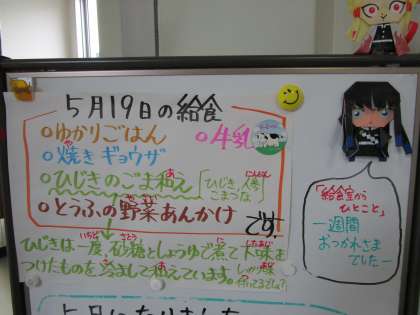 5月19日の給食
○ゆかりごはん
○牛乳
○焼きギョウザ
○ひじきのごま和え「ひじき、人参
こまつな」
○とうふの野菜あんかけ
です!
ひじきは一度砂糖としょうゆで煮て下味を
つけたものを冷まして和えています。しっかり味
「給食室から
ひとこと」
一週間
おつかれさま
でしたー
5月になりました